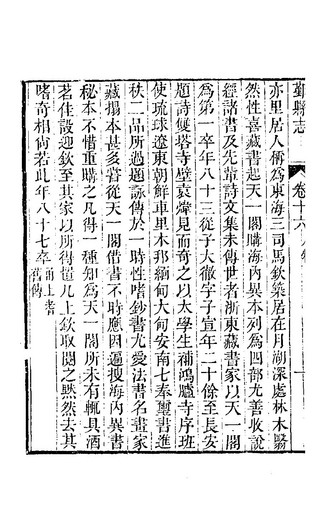 鄞縣志
卷十六
亦里居人稱爲東海三司馬欽築居在月湖深處林木翳
然性喜藏書起天一閣購海內異本列爲四部尤善收說
經諸書及先輩詩文集未傳世者浙東藏書家以天一閣
爲第一卒年八十三從子大徹字子宣年二十餘至長安
題詩雙塔寺壁袁煒見而奇之以太學生補鴻臚寺序班
使琉球遼東朝鮮車里木邦緬甸大甸安南七奉璽書進
秩二品所過題詠傳於一時性嗜鈔書尤愛法書名畫家
藏搨本甚多嘗從天一閣借書不時應因遍搜海內異書
秘本不惜重購之凡得一種知爲天一閣所未有輒具酒
茗佳設迎欽至其家以所得置几上欽取閱之默然去其
嗜奇相尚若此年八十七卒甬上耆
舊傳